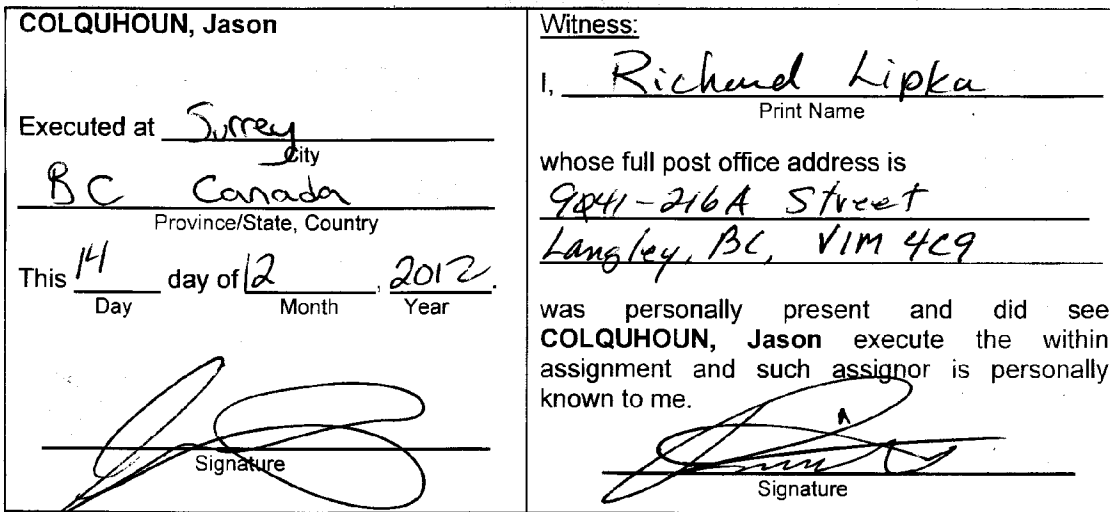 COLQUHOUN, Jason
Executed at Surrey
City
BC Canada
Province/State, Country
This 14 day of 12, 2012.
Day Month Year
Signature
Witness:
I, Richard Lipka
Print Name
whose full post office address is
9041-216A Street
Langley, BC, V1M 4C9
was personally present and did see
COLQUHOUN, Jason execute the within
assignment and such assignor is personally
known to me.
Signature